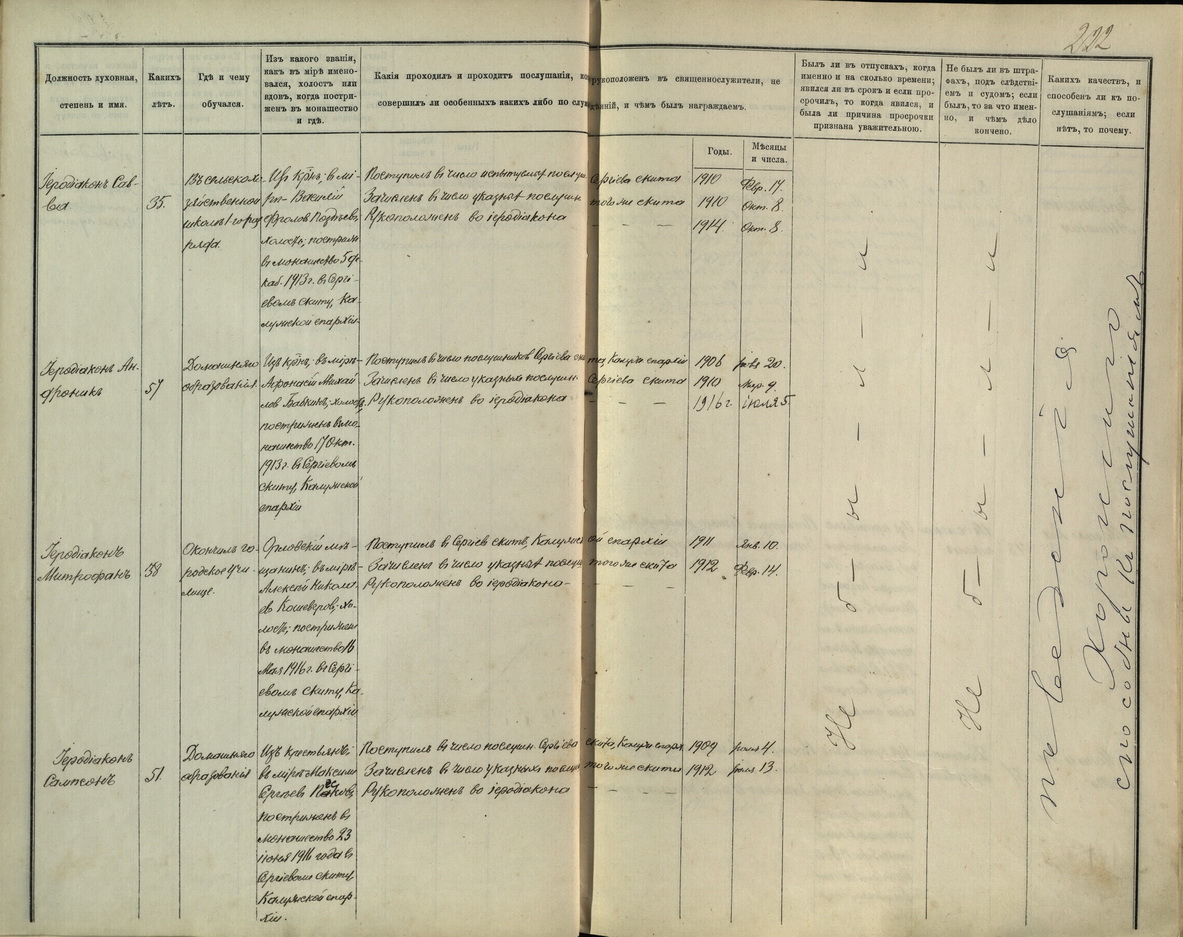 222
Должность духовная,
степень и имя.
Какихъ
лѣтъ.
Гдѣ и чему
обучался.
Изъ какого званія,
какъ въ мірѣ имено-
вался, холостъ или
вдовъ, когда постри-
женъ въ монашество
и гдѣ.
Какія проходилъ и проходитъ послушанія,
рукоположенъ въ священнослужители, не
совершилъ ли особенныхъ какихъ либо по
и чѣмъ былъ награждаемъ.
Годы.
Мѣсяцы
и числа.
Былъ ли въ отпускахъ, когда
именно и на сколько времени;
явился ли въ срокъ и если про-
срочилъ, то когда явился, и
была ли причина просрочки
признана уважительною.
Не былъ ли въ штра-
фахъ, подъ слѣдстві-
емъ и судомъ; если
былъ, то за что имен-
но, и чѣмъ дѣло
кончено.
Какихъ качествъ, и
способенъ ли къ по-
слушаніямъ; если
нѣтъ, то почему.
Іеродіаконъ Сав-
ва
35.
Въ сельскохо-
зяйственной
школѣ 1го раз
ряда.
Изъ крѣн; въ мі-
рѣ – Василій
Фроловъ
холостъ; постриж
въ монашество 5 де-
каб. 1913 г. въ Сергі-
евомъ скиту, Ка-
лужской епархіи.
Поступилъ въ число испытуемых послуш Сергіева скита 1910 Февр. 17.
Зачисленъ въ число указных послушн того же скита 1910 Окт. 8
Рукоположенъ во іеродіакона – – – 1914 Окт. 8
Іеродіаконъ Ан-
дроникъ
57
Домашняго
образованія
Изъ крѣн, въ мірѣ
Афонасій Михай
ловъ Бабкинъ, холост,
постриженъ въ мо
нашество 17 Окт.
1913 г. въ Сергіевомъ
скиту, Калужской
епархіи
Поступилъ въ число послушниковъ Сергіева скита, Калуж епархіи 1906 20.
Зачисленъ въ число указныхъ послушн Сергіева скита 1910 Мар. 9
Рукоположенъ во іеродіакона – – – 1916 г. іюля 5
Іеродіаконъ
Митрофанъ
38
Окончилъ го-
родское учи-
лище.
Орловскій мѣ-
щанинъ; въ мірѣ
Алексѣй Никола
евъ Кошеверовъ, хо-
лостъ; постриженъ
въ монашество 16
Мая 1916 г. въ Сергі-
евомъ скиту, Ка-
лужской епархіи
Поступилъ въ Сергіевъ скитъ, Калужской епархіи 1911 Янв. 10.
Зачисленъ въ число указныхъ послуш того же скита 1912 Февр. 14.
Рукоположенъ во іеродіакона – – –
Іеродіаконъ
Сампсонъ
51.
Домашняго
образованія
Изъ крестьянъ;
въ мірѣ Максимъ
Сергѣевъ
постриженъ въ
монашество 23
іюня 1916 года въ
Сергіевомъ скиту
Калужской епар-
хіи.
Поступилъ въ число послушн. Сергіева скита, Калуж епарх 1909 4.
Зачисленъ въ число указныхъ послуш того же скита 1912 13.
Рукоположенъ во іеродіакона – – –
Не б – ы – л – и
Не б – ы – л – и
поведенія
Хорошаго
способны къ послушаніямъ